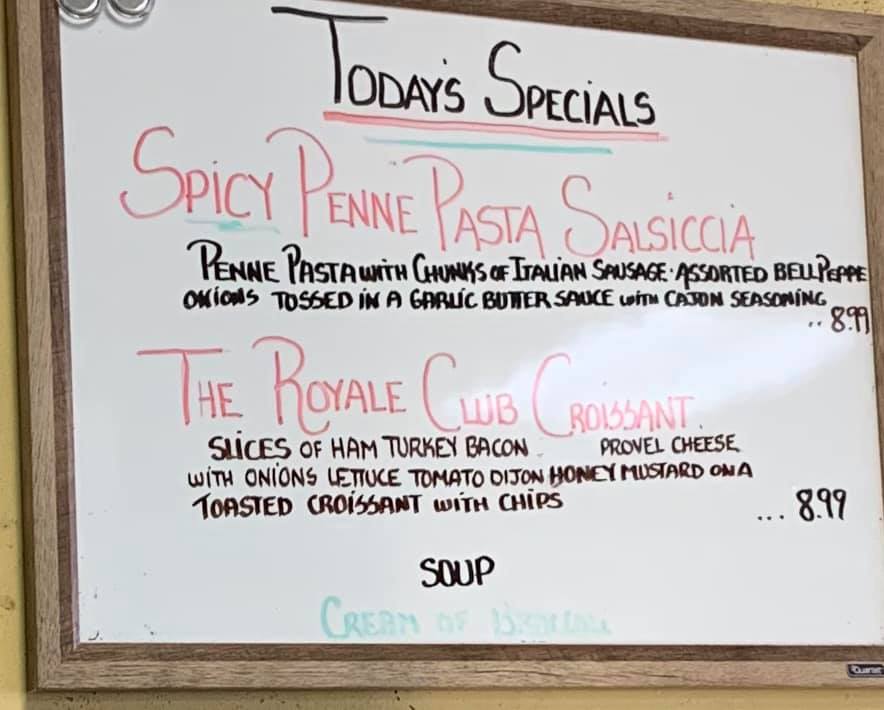 TODAY'S SPECIALS
SPICY PENNE PASTA SALSICCIA
PENNE PASTA WITH CHUNKS OF ITALIAN SAUSAGE · ASSORTED BELL PEPPE
ONIONS TOSSED IN A GARLIC BUTTER SAUCE WITH CAJON SEASONING
.. 8.99
THE ROYALE CLUB CROISSANT
SLICES OF HAM TURKEY BACON PROVEL CHEESE
WITH ONIONS LETTUCE TOMATO DIJON HONEY MUSTARD ON A
TOASTED CROISSANT WITH CHIPS
... 8.99
SOUP
CREAM OF
Quartet